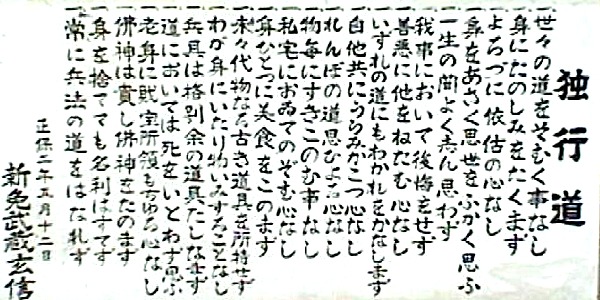 独行道
一世々の道をそむく事なし
一身にたのしみをたくまず
一よろづに依怙の心なし
一身をあさく思世をふかく思ふ
一生の間よくしん思わず
一我事において後悔をせず
一善悪に他をねたむ心なし
一いずれの道にもわかれをかなしまず
一自他共にうらみかこつ心なし
一れんぼの道思ひよる心なし
一物毎にすきこのむ事なし
一私宅においてのぞむ心なし
一身ひとつに美食をこのまず
一末々代物なる古き道具を所持せず
一わが身にいたり物いみすることなし
一兵具は格別余の道具たしなまず
一道においては死をいとわず思ふ
一老身に財宝所領もちゆる心なし
一佛神は貴し佛神をたのまず
一身を捨てても名利はすてず
一常に兵法の道をはなれず
正保二年五月十二日
新免武蔵玄信